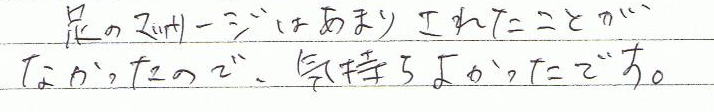 足のマッサージはあまりされたことが
なかったので、気持ちよかったです。